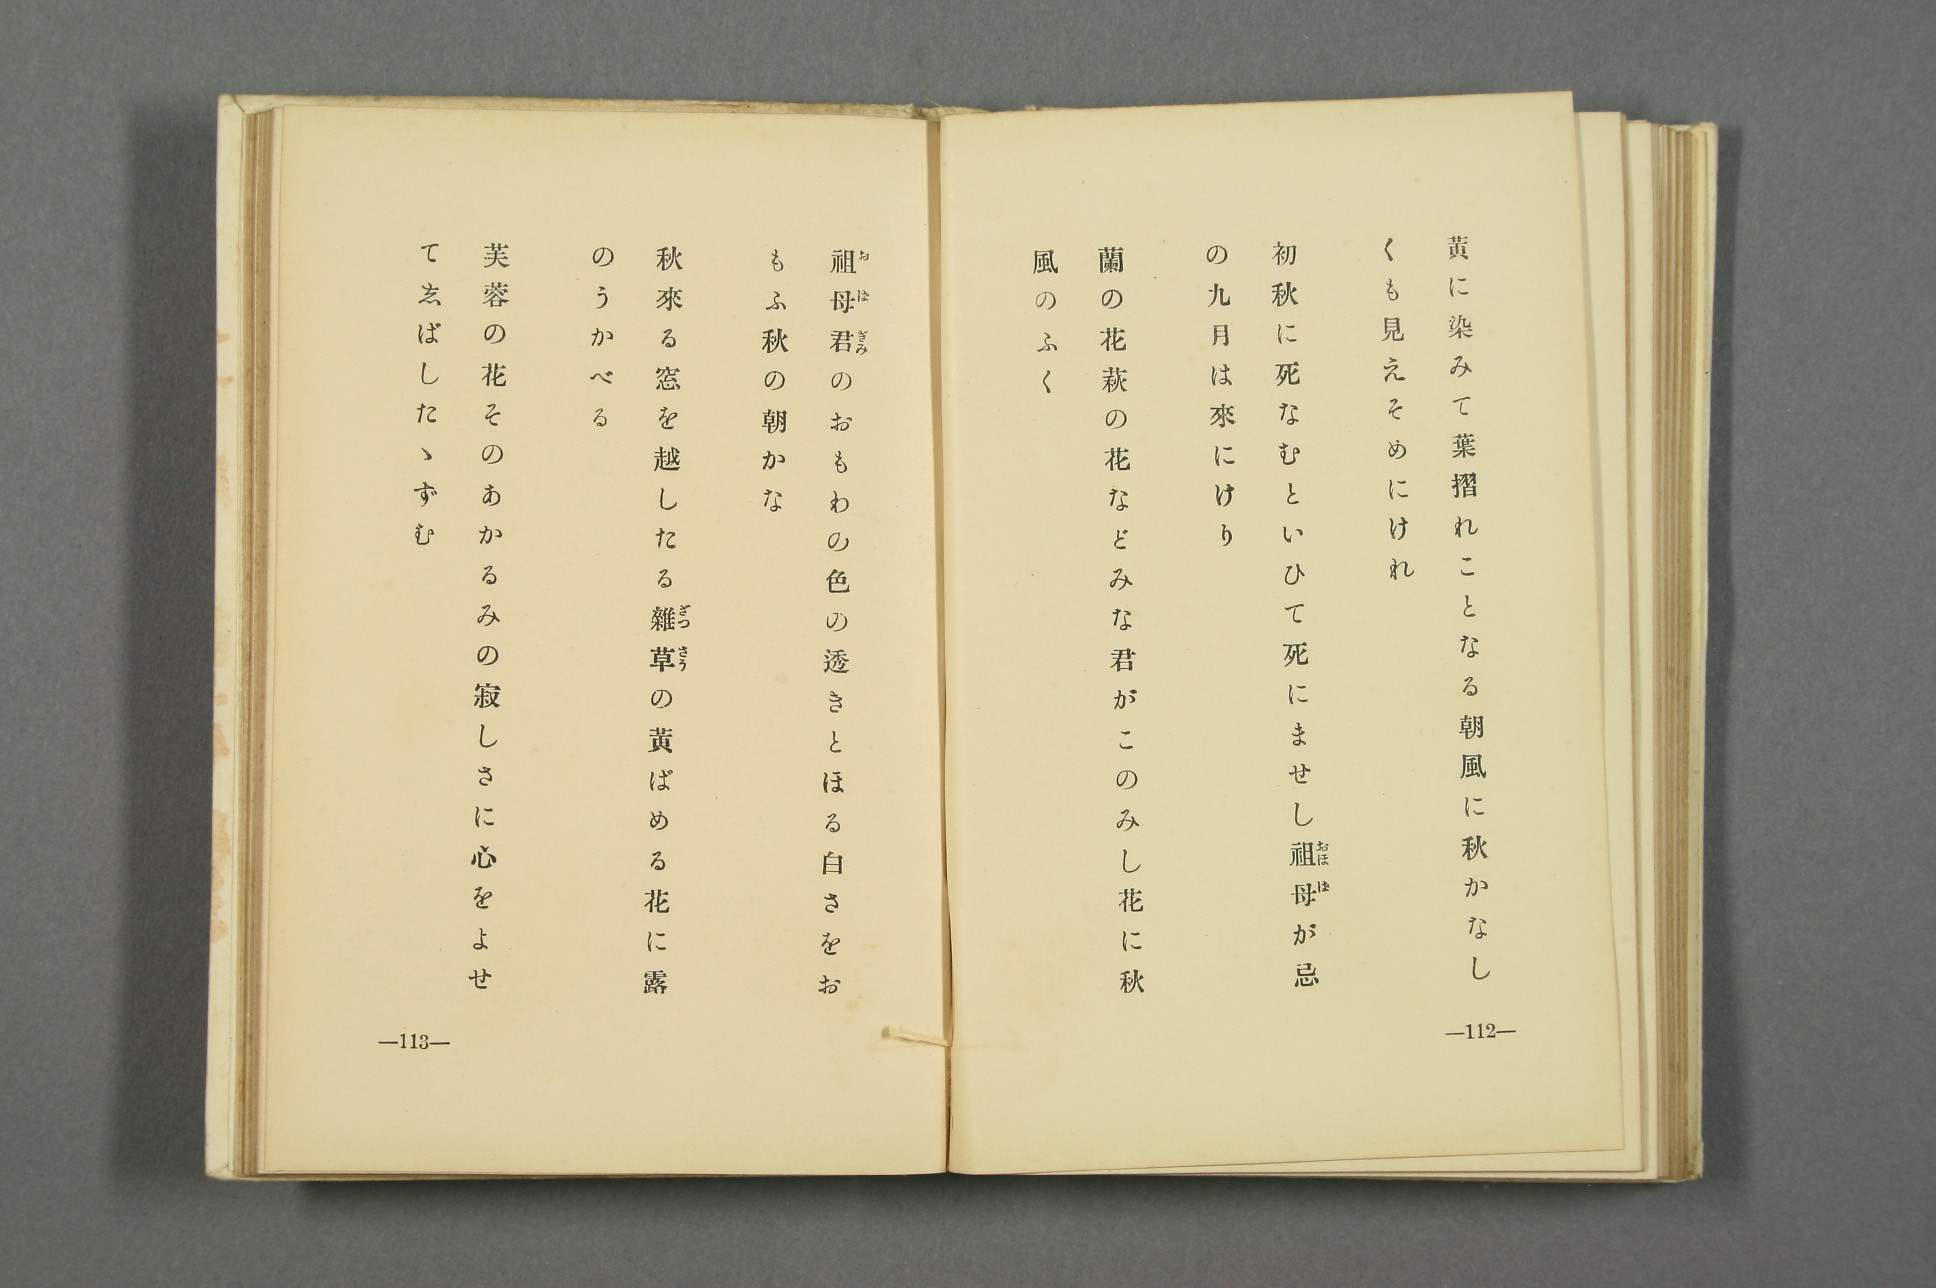 黄に染みて葉摺れことなる朝風に秋かなし
くも見えそめにけれ
初秋に死なむといひて死にませし祖母が忌
の九月は來にけり
蘭の花萩の花などみな君がこのみし花に秋
風のふく
—112—
祖母君のおもわの色の透きとほる白さをお
もふ秋の朝かな
秋來る窓を越したる雜草の黄ばめる花に露
のうかべる
芙蓉の花そのあかるみの寂しさに心をよせ
てゑばしたゝずむ
—113—